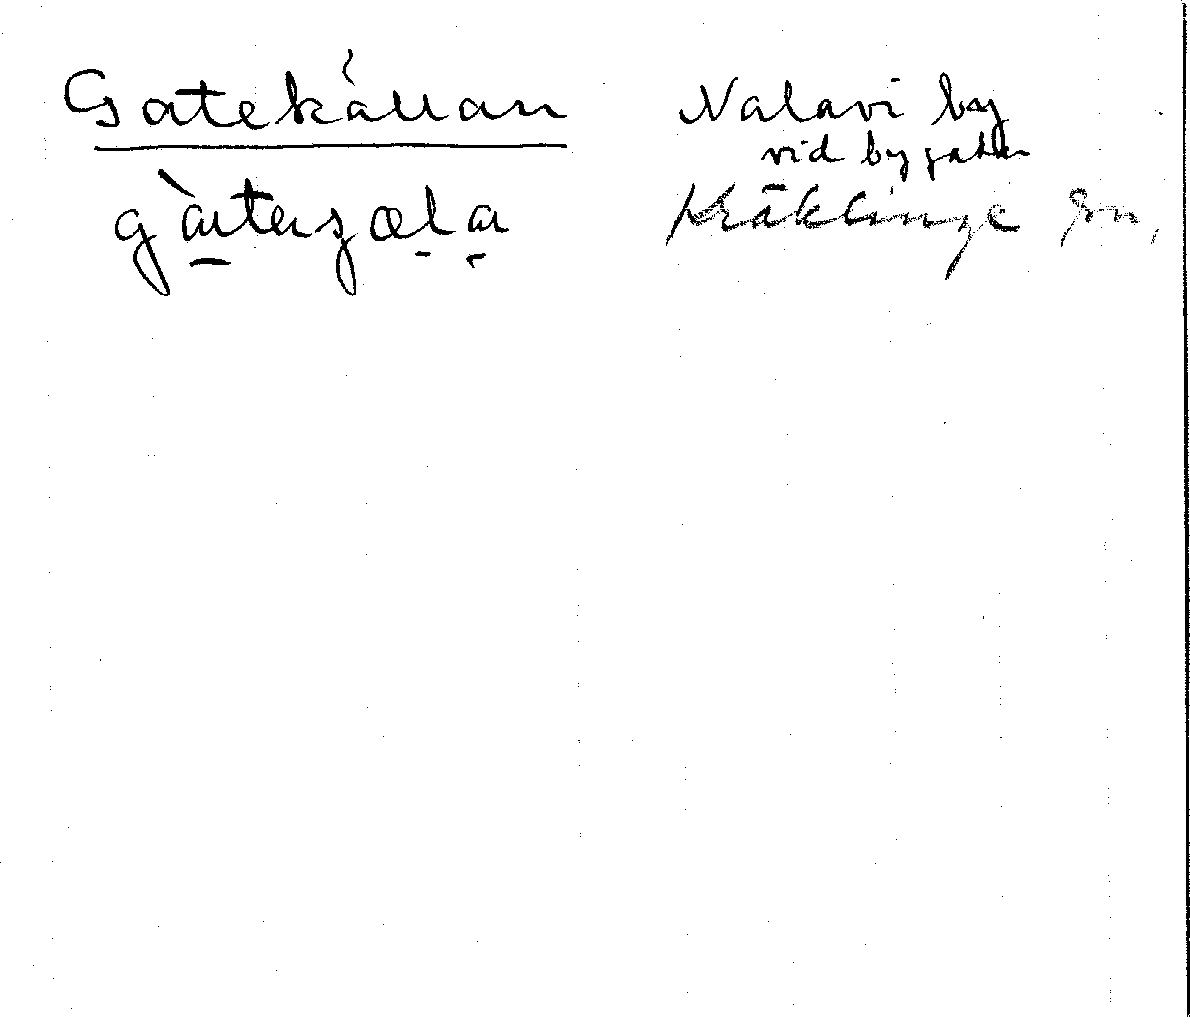 Gatekällan
Nalavi by
vid bygatan
Kräklinge sn,